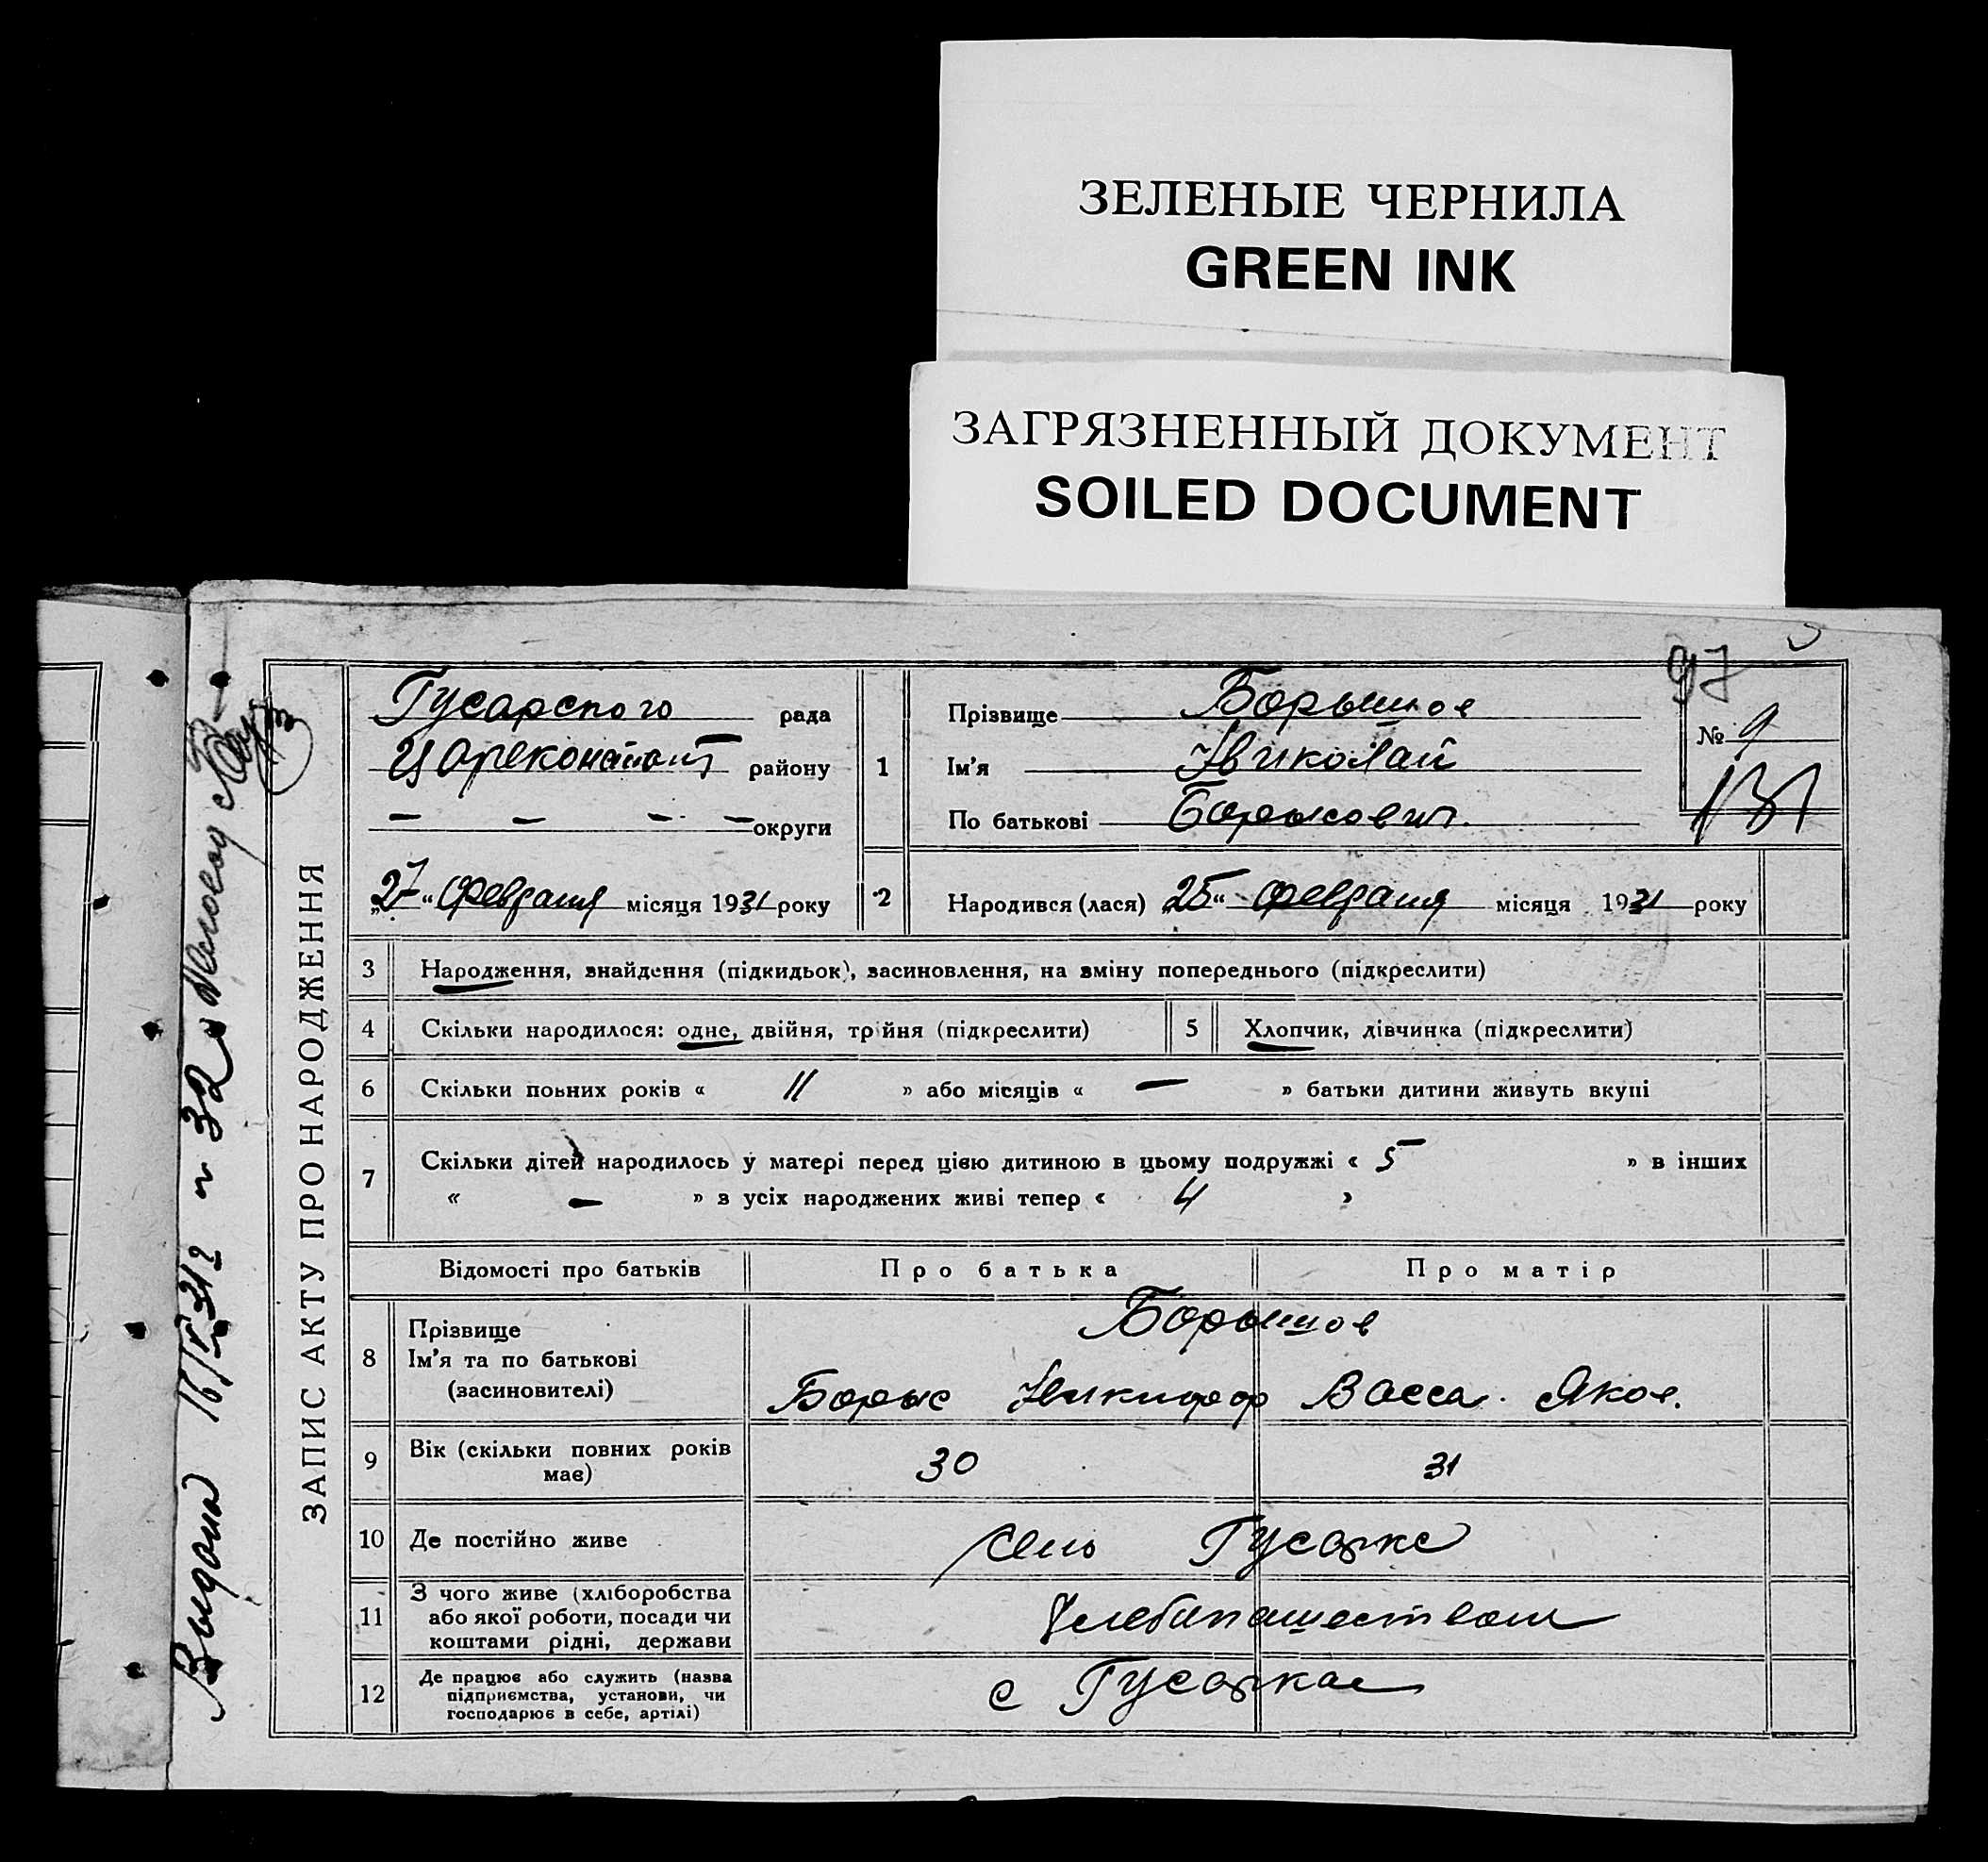 ЗЕЛЕНЫЕ ЧЕРНИЛА
GREEN INK
ЗАГРЯЗНЕННЫЙ ДОКУМЕНТ
SOILED DOCUMENT
97
ЗАПИС АКТУ ПРО НАРОДЖЕННЯ
Гусарского рада
Цареконстант району
— — — — округи
„27“ Февраля місяця 1931 року
1 Прізвище Борышов
Ім'я Николай
По батькові Борысович.
№ 9
131
2 Народився (лася) „25“ Февраля місяця 1931 року
3 Народження, знайдення (підкидьок), засиновлення, на зміну попереднього (підкреслити)
4 Скільки народилося: одне, двійня, трійня (підкреслити) 5 Хлопчик, дівчинка (підкреслити)
6 Скільки повних років « 11 » або місяців « — » батьки дитини живуть вкупі
7 Скільки дітей народилось у матері перед цією дитиною в цьому подружжі « 5 » в інших
« — » з усіх народжених живі тепер « 4 »
Відомості про батьків Про батька Про матір
8 Прізвище
Ім'я та по батькові
(засиновителі)
Борышов
Борыс Никифор Васса. Яков.
9 Вік (скільки повних років має) 30 31
10 Де постійно живе Село Гусарке
11 З чого живе (хліборобства
або якої роботи, посади чи
коштами рідні, держави
Хлебапашеством
12 Де працює або служить (назва
підприємства, установи, чи
господарює в себе, артілі)
с Гусарка
Выдана 16/IV 31 г № 32